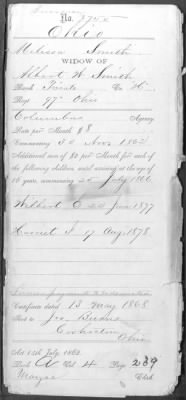 No.
Ohio
Melissa Smith
WIDOW OF
Albert W. Smith
Rank Private Co.
Regt 97" Ohio
Columbus Agency
Rate per Month $8
Commencing 30 Nov 1862
Additional sum of $2 per Month for each of
the following children until arriving at the age of
16 years, commencing 25 July 1866
Wilbert E 22 June 1877
Harriet I 17 Aug 1878
Certificate dated 13 May 1868
Sent to
Coshocton
Ohio
Act 14th July 1862.
Book A Vol 4 Page 239
Clerk